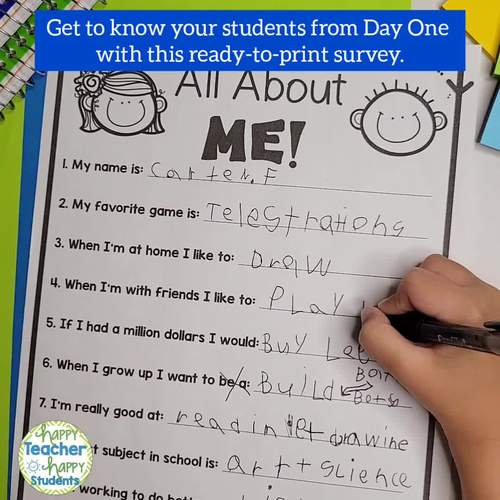 Get to know your students from Day One
with this ready-to-print survey.
All About
ME!
1. My name is: Carter.F
2. My favorite game is: Telestrations
3. When I'm at home I like to: Draw
4. When I'm with friends I like to: PLAY
5. If I had a million dollars I would: BUY
6. When I grow up I want to be a: Build
7. I'm really good at: readin drawine
t subject in school is: art + science
working to do
Happy
Teacher
Happy
Students